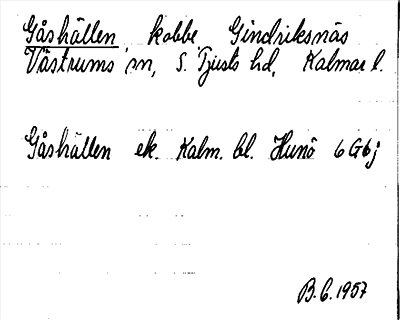 Gåshällen, kobbe Gindriksnäs
Västrums sn, S. Tjusts hd, Kalmar l.
Gåshällen ek. Kalm. bl. Hunö 6 G 6 j
B.G. 1957